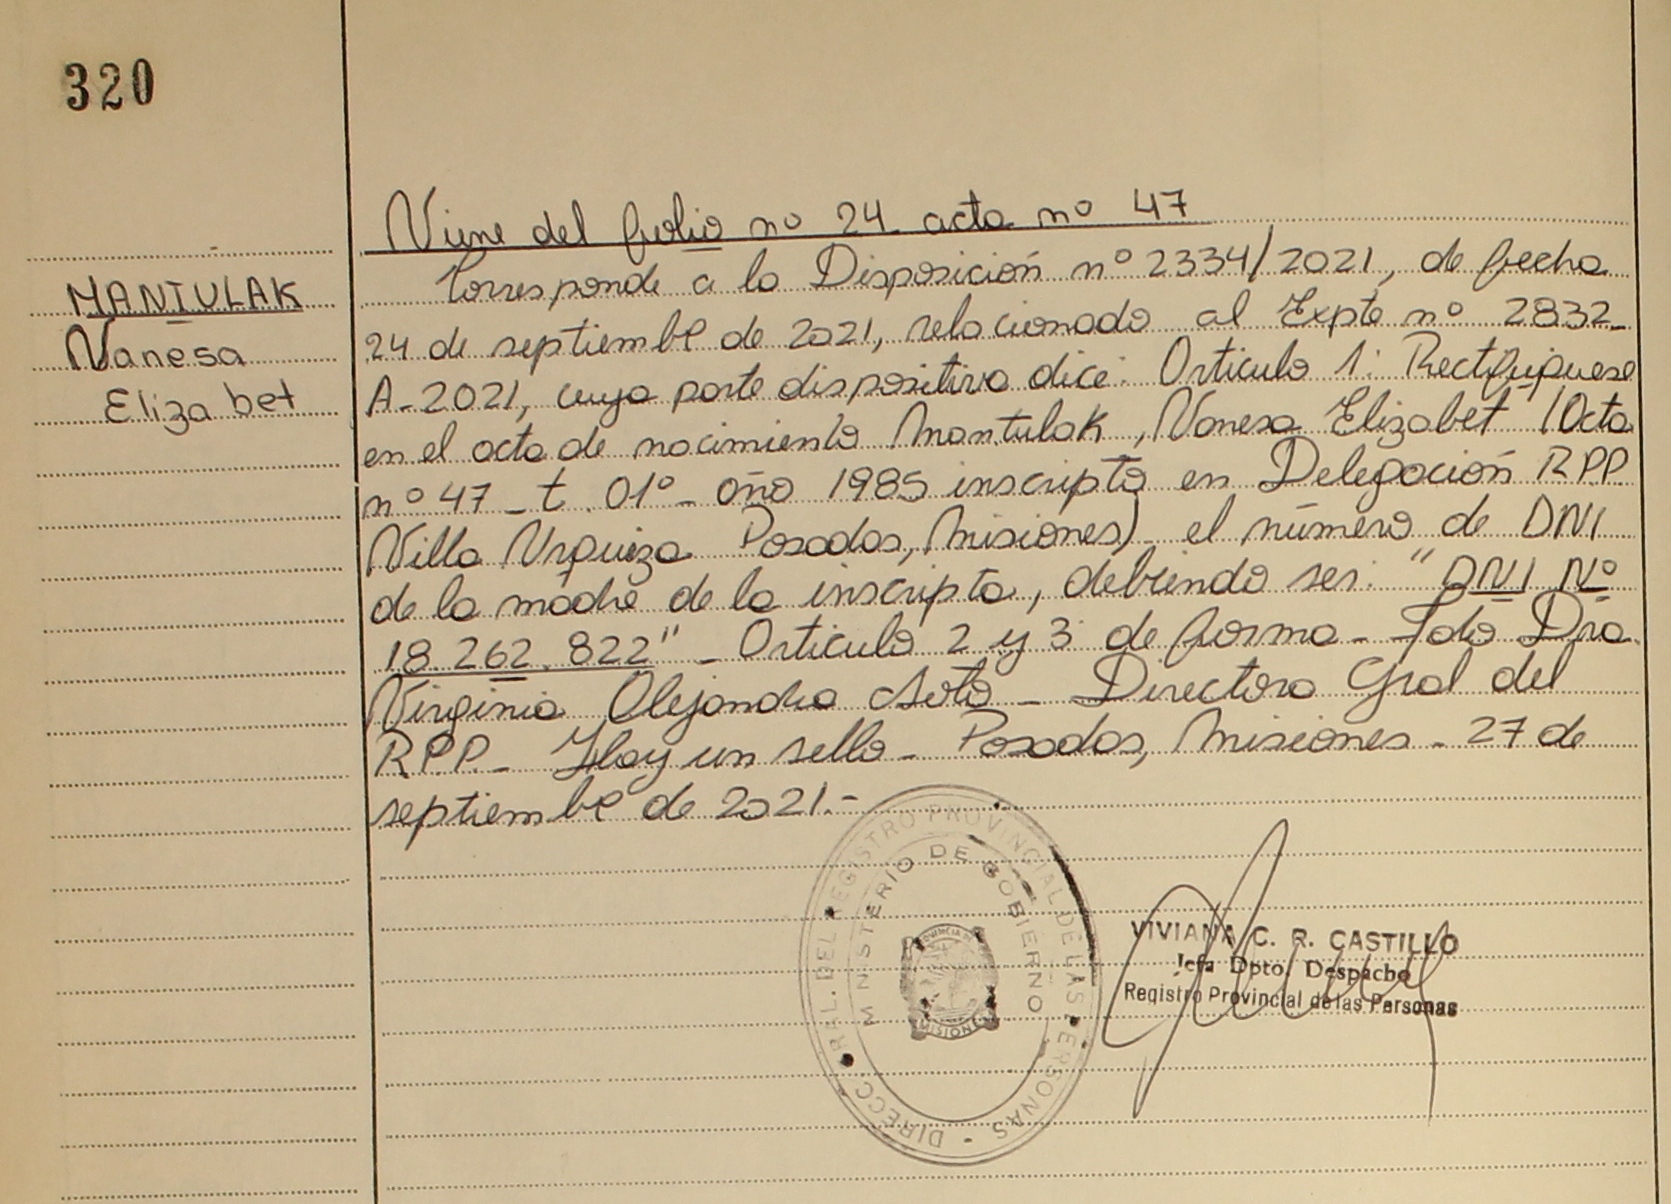 320
MANTULAK
Vanesa
Elizabet
Viene del folio nº 24 acta nº 47
Corresponde a la Disposición nº 2334/2021, de fecha
24 de septiembre de 2021, relacionado al Expte nº 2832-
A-2021, cuya parte dispositiva dice: Articulo 1: Rectifiquese
en el acta de nacimiento Mantulak, Vanesa Elizabet (Acta
nº 47 - t. 01º - año 1985 inscripta en Delegación R.P.P.
Villa Urquiza Posadas, Misiones) el número de DNI
de la madre de la inscripta, debiendo ser: "DNI Nº
18.262.822" - Articulo 2 y 3 de forma - Fdo Dra
Virginia Alejandra Soto - Directora Gral del
R.P.P. - Hay un sello - Posadas, Misiones - 27 de
septiembre de 2021.-
DIRECC. GRAL. DEL REGISTRO PROVINCIAL DE LAS PERSONAS -
MINISTERIO DE GOBIERNO
PROVINCIA DE
MISIONES
VIVIANA C. R. CASTILLO
Jefa Dpto. Despacho
Registro Provincial de las Personas